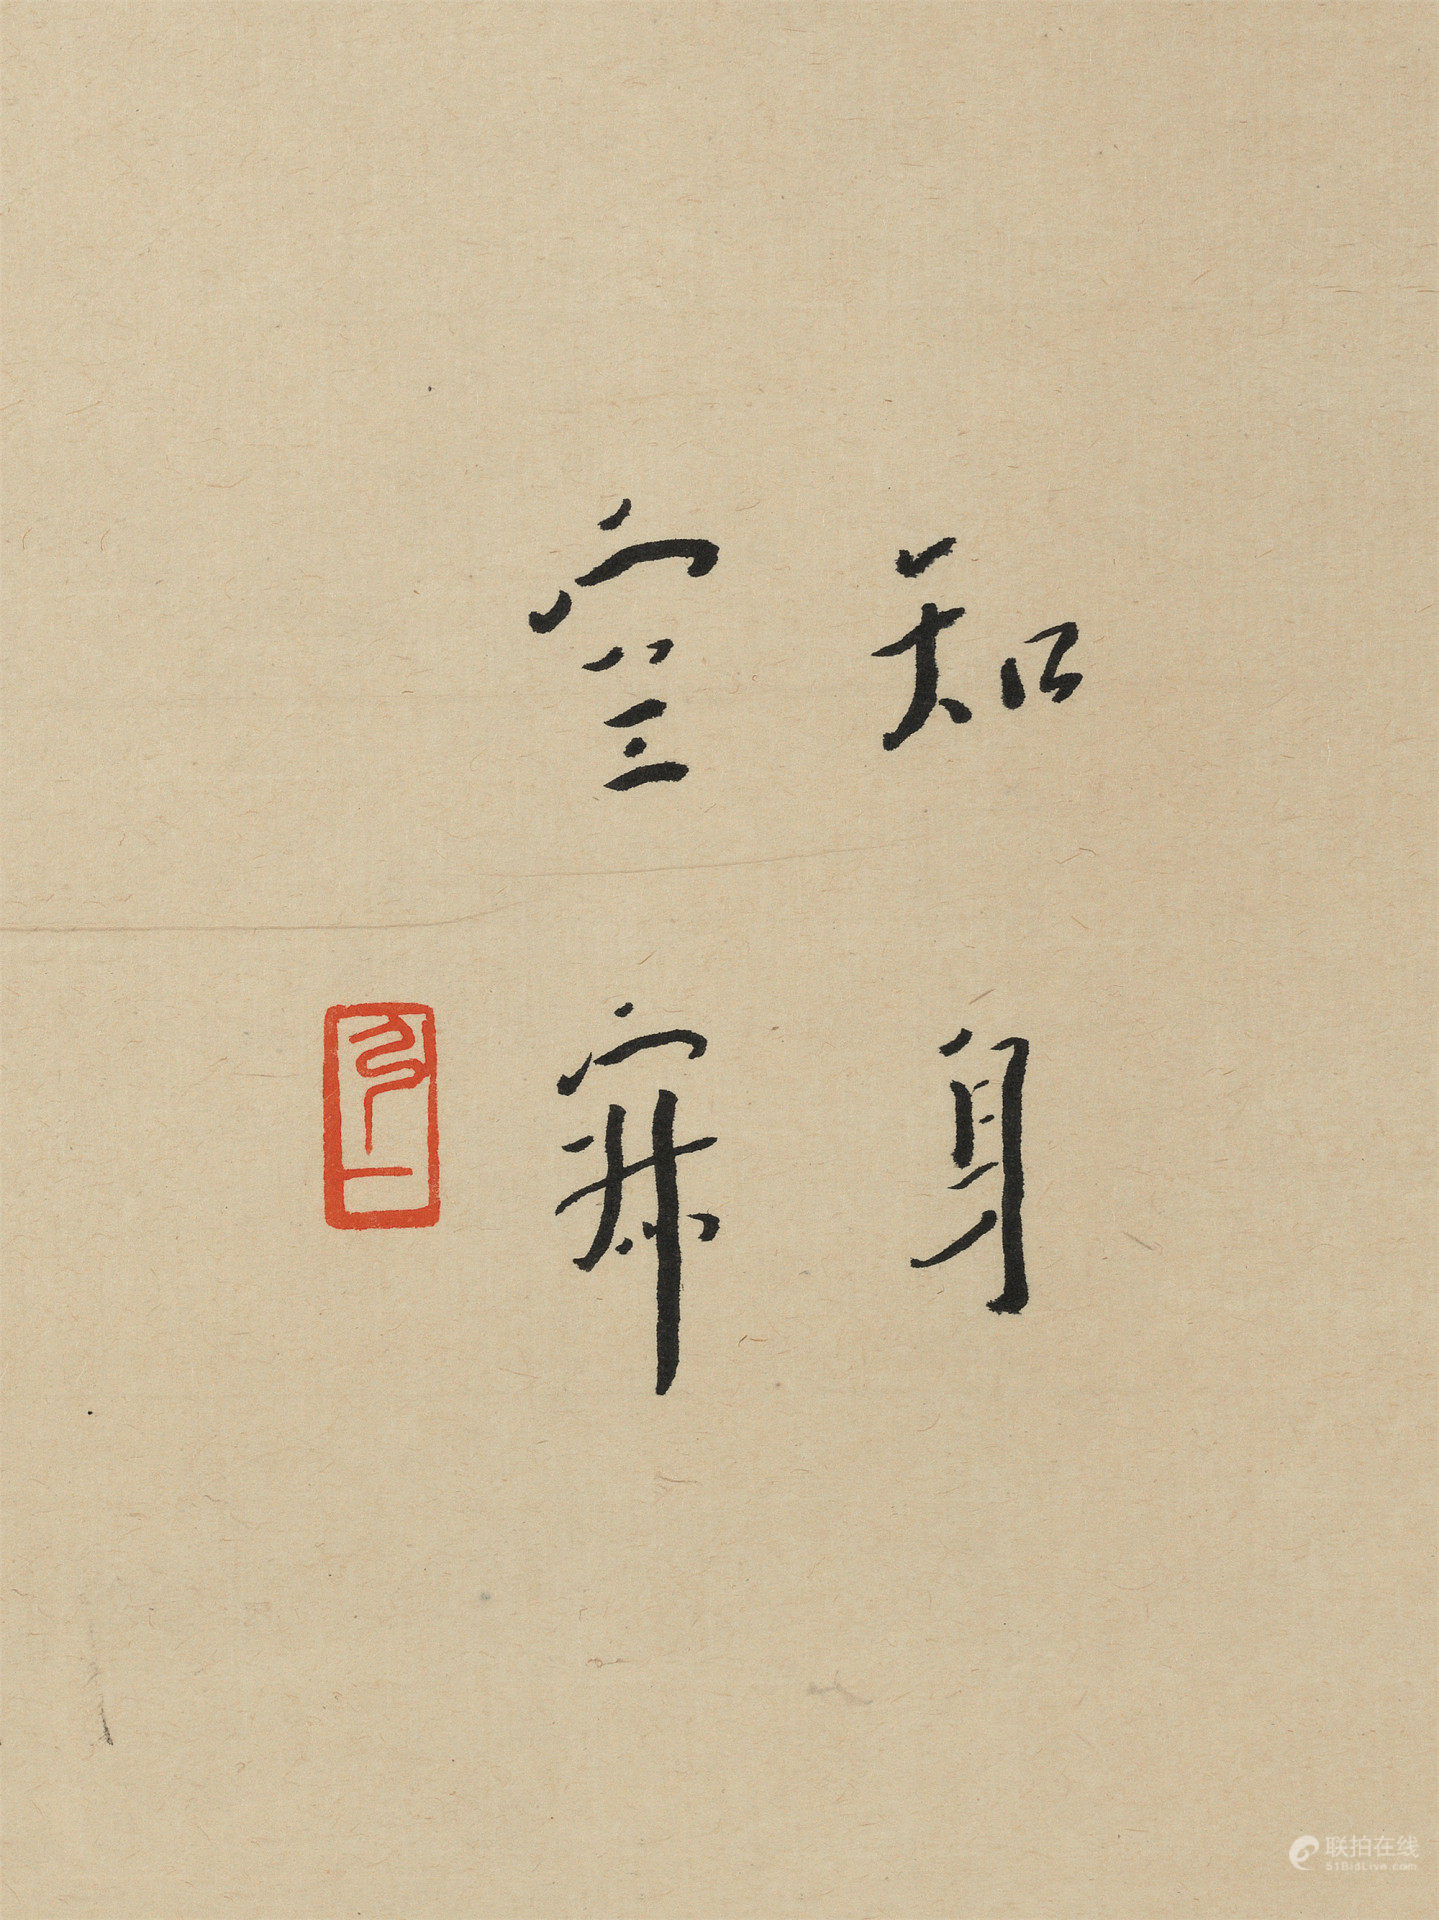 知身
空寂
弘一
联拍在线
51BidLive.com